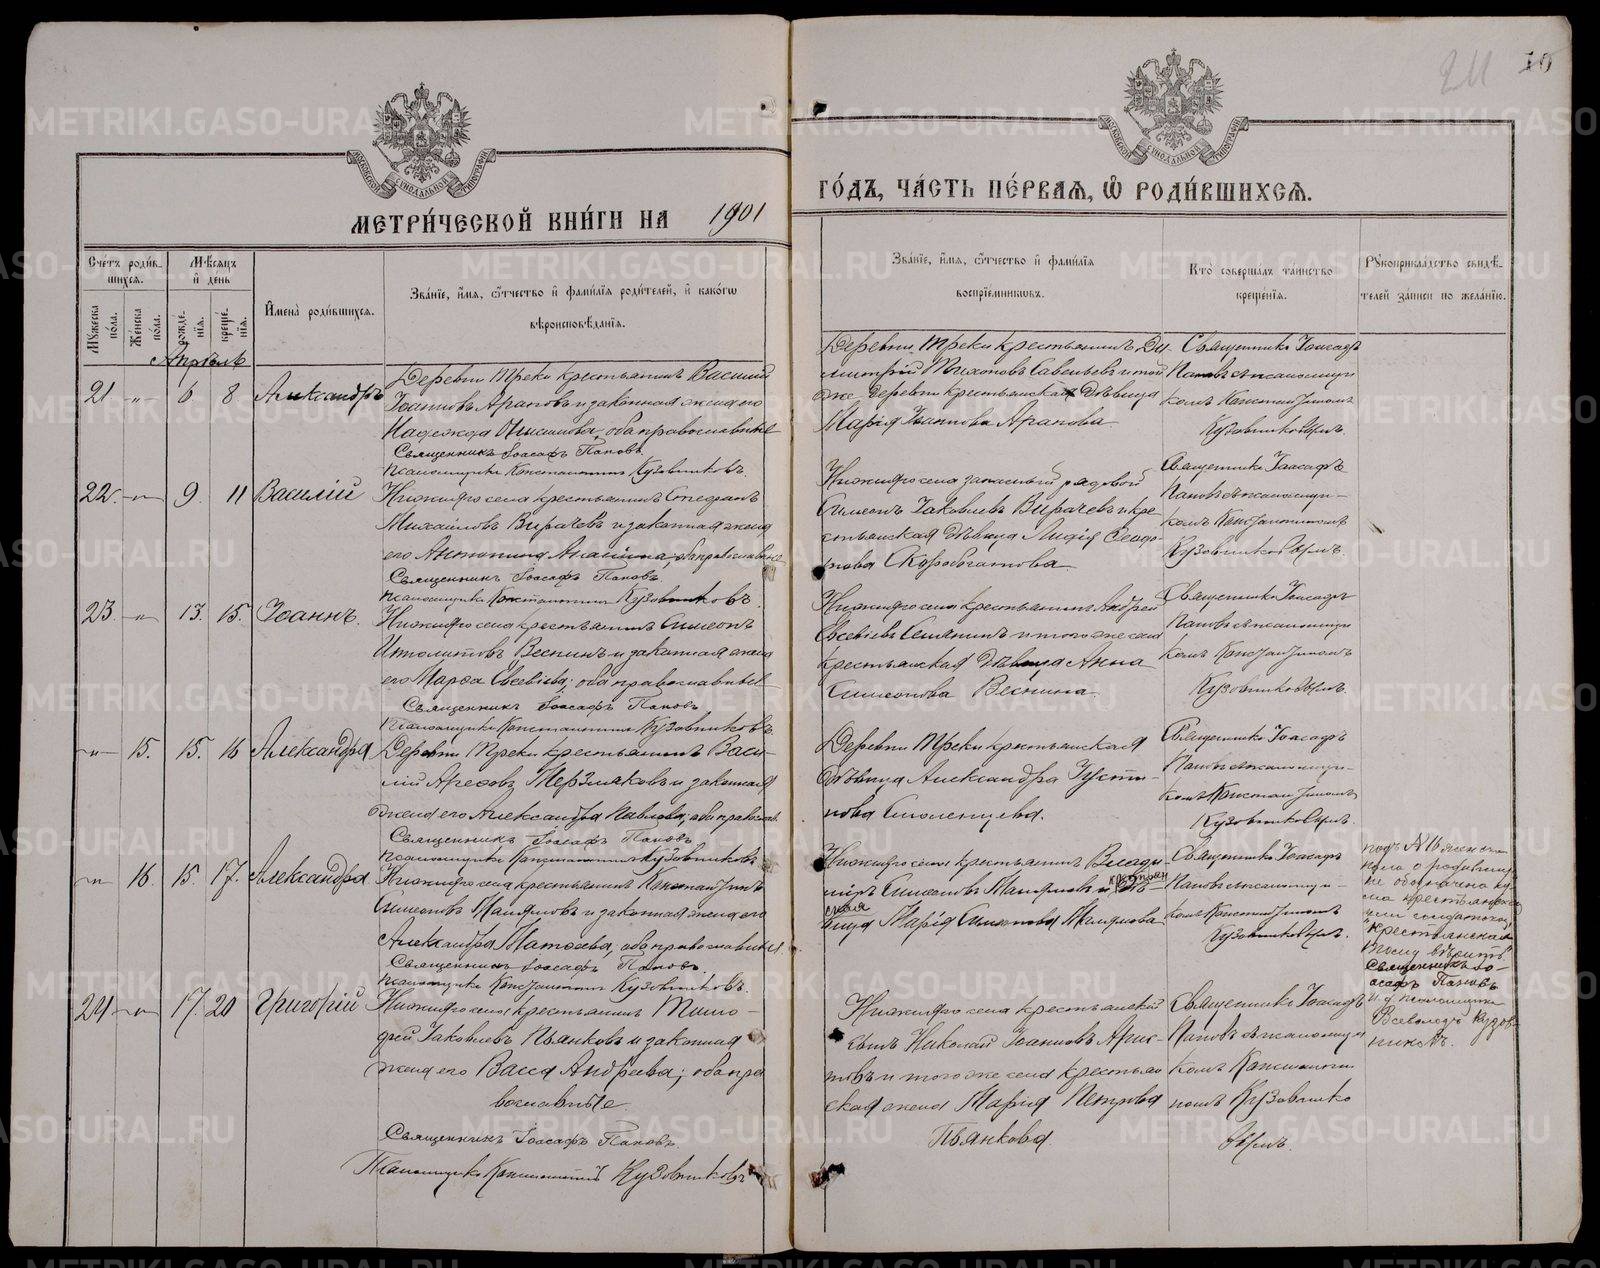 211 10
МОСКОВСКОЙ СѴНОДАЛЬНОЙ ТИПОГРАФІИ
МОСКОВСКОЙ СѴНОДАЛЬНОЙ ТИПОГРАФІИ
МЕТРИ́ЧЕСКОЙ КНИ́ГИ НА 1901
ГО́ДЪ, ЧА́СТЬ ПЕ́РВАЯ, Ѡ РОДИ́ВШИХСЯ.
Счетъ родившихся.
Мужеска пола.
Женска пола.
Мѣсяцъ и день
рождения.
крещенія.
Имена родившихся.
Званіе, имя, отчество и фамилія родителей, и какогѡ вѣроисповѣданія.
Званіе, имя, отчество и фамилія воспріемниковъ.
Кто совершалъ таинство крещенія.
Рукоприкладство свидѣтелей записи по желанію.
Апрѣль
21 -"- 6 8. Александръ
Деревни Треки крестьянинъ Василий
Іоанновъ Араповъ и законная жена его
Надежда Онисимова, оба православные
Священникъ Іоасафъ Поповъ.
Псаломщикъ Константинъ Кузовниковъ.
Деревни Треки крестьянинъ Ди-
митрій Тихоновъ Савельевъ и той
же деревни крестьянская дѣвица
Марія Іоаннова Арапова
Священникъ Іоасафъ
Поповъ съ псаломщи
комъ Константиномъ
Кузовниковымъ.
22. -"- 9. 11 Василій
Нижняго села крестьянинъ Стефанъ
Михайловъ Вирачевъ и законная жена
его Антонина Ананіина, оба православн
Священникъ Іоасафъ Поповъ.
Псаломщикъ Константинъ Кузовниковъ.
Нижняго села запасный рядовой
Симеонъ Іаковлевъ Вирачевъ и кре
стьянская дѣвица Лидія Сидо-
рова Скоробогатова
Священникъ Іоасафъ
Поповъ съ псаломщи-
комъ Константиномъ
Кузовниковымъ.
23. -"- 13. 15. Іоаннъ.
Нижняго села крестьянинъ Симеонъ
Ипполитовъ Веснинъ и законная жена
его Марѳа Евсевіева; оба православные
Священникъ Іоасафъ Поповъ
Псаломщикъ Константинъ Кузовниковъ.
Нижняго села крестьянинъ Андрей
Евсевіевъ Симянинъ и того же села
крестьянская дѣвица Анна
Симеонова Веснина.
Священникъ Іоасафъ
Поповъ съ псаломщи
комъ Константиномъ
Кузовниковымъ.
-"- 15. 15. 16 Александра
Деревни Треки крестьянинъ Васи-
лій Мерзляковъ и законная
жена его Александра Павлова; оба православ.
Священникъ Іоасафъ Поповъ
Псаломщикъ Константинъ Кузовниковъ
Деревни Треки крестьянская
дѣвица Александра Іусти-
нова Смоленцева.
Священникъ Іоасафъ
Поповъ съ псаломщи-
комъ Константиномъ
Кузовниковымъ.
-"- 16. 15. 17. Александра
Нижняго села крестьянинъ Константинъ
Симеоновъ и законная жена его
Александра Матѳеева; оба православные.
Священникъ Іоасафъ Поповъ.
Псаломщикъ Константинъ Кузовниковъ.
Нижняго села крестьянинъ Влади
миръ Симеоновъ и крестьян
ская дѣ-
вица Марія Симеонова
Священникъ Іоасафъ
Поповъ съ псаломщи-
комъ Константиномъ
Кузовниковымъ.
подъ № 16 женска
пола о родившей
не обозначена
крестьянская
или солдатская
"крестьянская"
тому вѣрить.
Священникъ Іо-
асафъ Поповъ
И. д. псаломщика
Всеволодъ Кузов-
никовъ.
24 -"- 17. 20 Григорій
Нижняго села крестьянинъ Тимо-
фей Іаковлевъ Пьянковъ и законная
жена его Васса Андреева; оба пра
вославные.
Священникъ Іоасафъ Поповъ.
Псаломщикъ Константинъ Кузовниковъ
Нижняго села крестьянскій
сынъ Николай Іоанновъ
и того же села крестьян
ская жена Марія Петрова
Пьянкова.
Священникъ Іоасафъ
Поповъ съ псаломщи
комъ Константи
номъ Кузовнико
вымъ.
METRIKI.GASO-URAL.RU